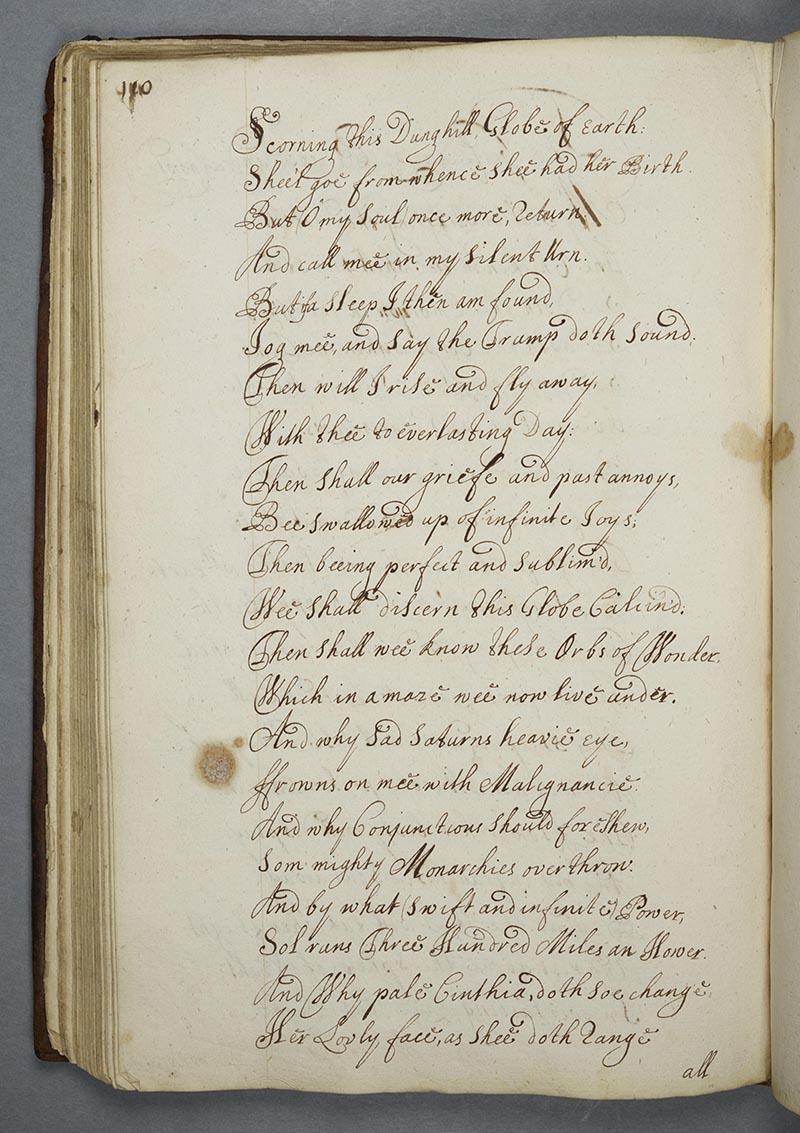 110
Scorning this Dunghill Globe of Earth:
Shee'l goe from whence Shee had her Birth.
But O my Soul once more, Return.
And call mee in my Silent Urn.
But if a Sleep I then am found,
Jog mee, and Say the Trump doth Sound.
Then will I rise and fly away,
With thee to everlasting Day:
Then Shall our griefe and past annoys,
Bee Swallowed up of infinite Joys;
Then beeing perfect and Sublim'd,
Wee Shall discern this Globe Calcin'd:
Then Shall wee know these Orbs of Wonder,
Which in amaze wee now live under.
And why Sad Saturns heavie eye,
ffrowns on mee with Malignancie.
And why Conjunctious Should foreShew,
Som mighty Monarchies overthrow.
And by what (Swift and infinite) Power,
Sol runs Three Hundred Miles an Hower.
And Why pale Cinthia, doth Soe change
Her Lovly face, as Shee doth Range
all